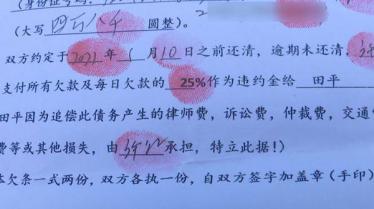 (身份证号码:
(大写 四万八千 圆整)。
双方约定于 2021 年 1 月 10 日之前还清,逾期未还清,
支付所有欠款及每日欠款的 25% 作为违约金给 田平
田平因为追偿此债务产生的律师费,诉讼费,仲裁费,交通
费等或其他损失,由 承担,特立此据!)
欠条一式两份,双方各执一份,自双方签字加盖章(手印)